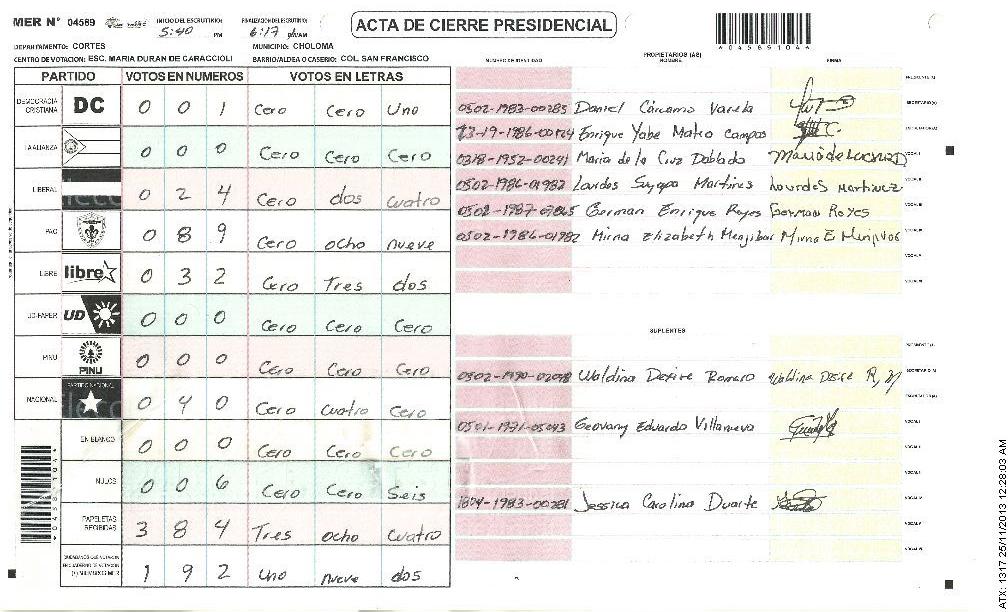 MER N° 04589 INICIO DEL ESCRUTINIO: 5:40 PM FINALIZACION DEL ESCRUTINIO: 6:17 ACTA DE CIERRE PRESIDENCIAL
DEPARTAMENTO: CORTES MUNICIPIO: CHOLOMA
CENTRO DE VOTACION: ESC. MARIA DURAN DE CARACCIOLI BARRIO/ALDEA O CASERIO: COL SAN FRANCISCO
PARTIDO VOTOS EN NUMEROS VOTOS EN LETRAS
NUMERO DE IDENTIDAD PROPIETARIOS (AS) NOMBRE FIRMA
DEMOCRACIA CRISTIANA DC 0 0 1 Cero Cero Uno
LA ALIANZA 0 0 0 Cero Cero Cero
LIBERAL 0 2 4 Cero dos cuatro
PAC 0 8 9 Cero ocho nueve
LIBRE libre 0 3 2 Cero Tres dos
UD-FAPER UD 0 0 0 Cero Cero Cero
PINU PINU 0 0 0 Cero Cero Cero
NACIONAL PARTIDO NACIONAL 0 4 0 Cero cuatro Cero
EN BLANCO 0 0 0 Cero Cero Cero
NULOS 0 0 6 Cero Cero Seis
PAPELETAS RECIBIDAS 3 8 4 Tres ocho Cuatro
1 9 2 uno nueve dos
0502-1983-00285 Daniel Cárcamo Varela
Enrique Yabe Mateo Campos
0318-1952-00241 Maria de la Cruz Doblado
0502-1986-01982 Lourdes Suyapa Martines Lourdes Martinez
German Enrique Reyes German Reyes
0502-1986-01982 Mirna Elizabeth Menjibar Mirna E
SUPLENTES
Waldina Desire Romero Waldina Desire
0501-1971-05043 Geovany Eduardo Villanueva
1804-1983-00281 Jessica Carolina Duarte
ATX: 1317 25/11/2013 12:28:03 AM